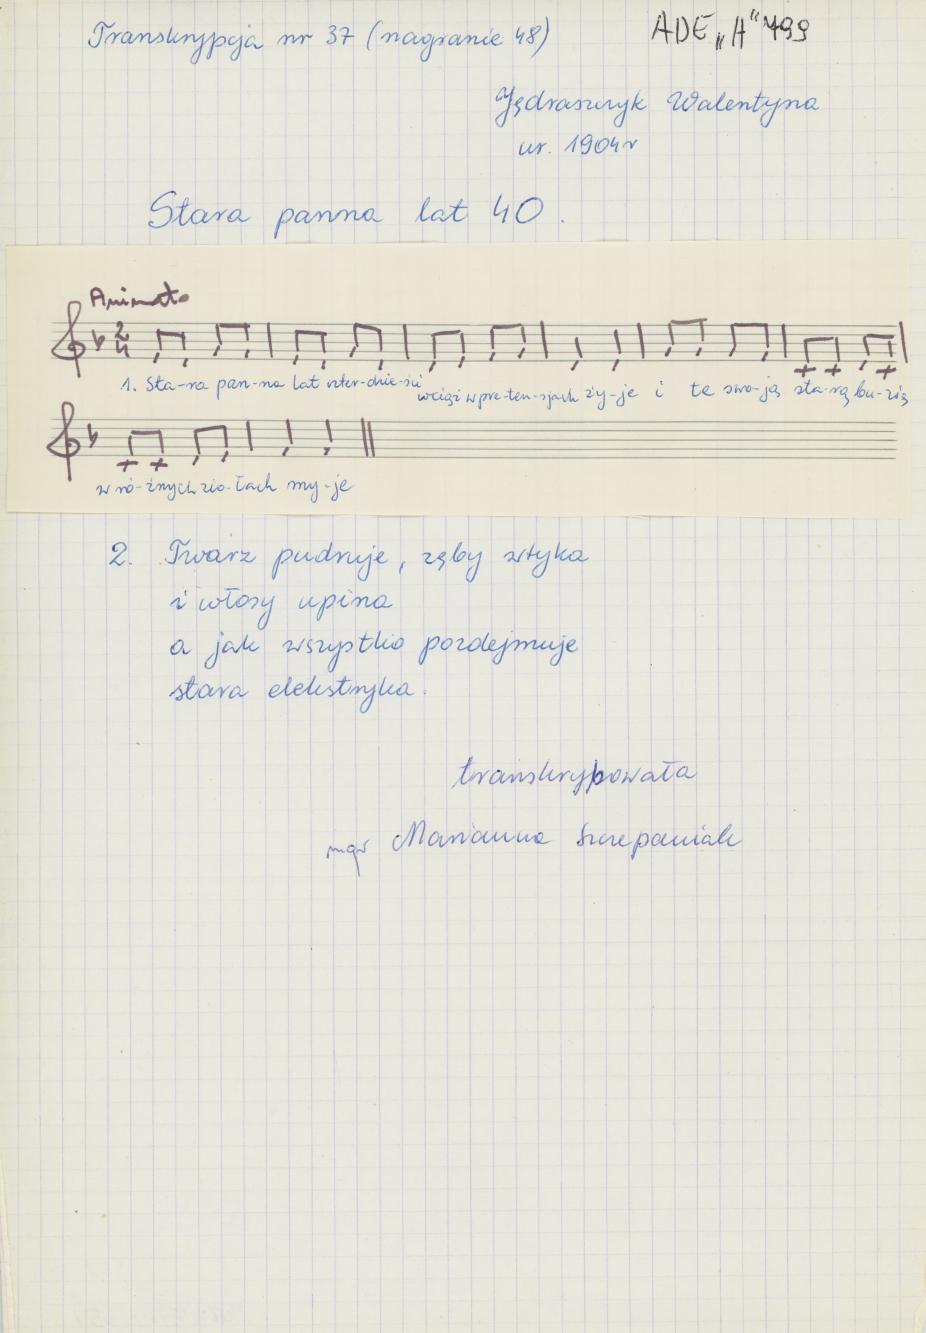 Transkrypcja nr 37 (nagranie 48)
ADE „A" 499
Jędraszczyk Walentyna
ur. 1904 r
Stara panna lat 40.
Animato
1. Sta-ra pan-na lat czter-dzie-ści wciąż w pre-ten-sjach ży-je i te swo-ją sta-rą bu-zią
w ró-żnych zio-łach my-je
2. Twarz pudruje, zęby wtyka
i włosy upina
a jak wszystko pozdejmuje
stara elekstryka.
transkrybowała
mgr Marianna Szczepaniak